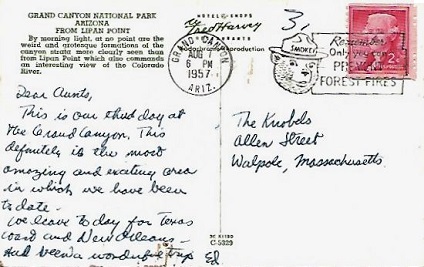 GRAND CANYON NATIONAL PARK
ARIZONA
FROM LIPAN POINT
By morning light, at no point are the
weird and grotesque formations of the
canyon strata more clearly seen than
from Lipan Point which also commands
an interesting view of the Colorado
River.
HOTELS SHOPS
Fred Harvey
RESTAURANTS
3
GRAND CANYON
AUG
6 PM
1957
ARIZ.
SMOKEY
Remember
Only you
PREVENT
FOREST FIRES
2¢
Dear Aunts,
This is our third day at
the Grand Canyon. This
definitely is the most
amazing and exciting area
in which we have been
to date.
We leave to day for Texas
coast and New Orleans —
Has been a wonderful trip
Ed
The Knobels
Allen Street
Walpole, Massachusetts.
C-5329